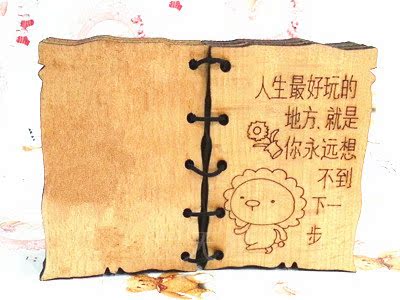 人生最好玩的
地方、就是
你永远想
不到
下一
步